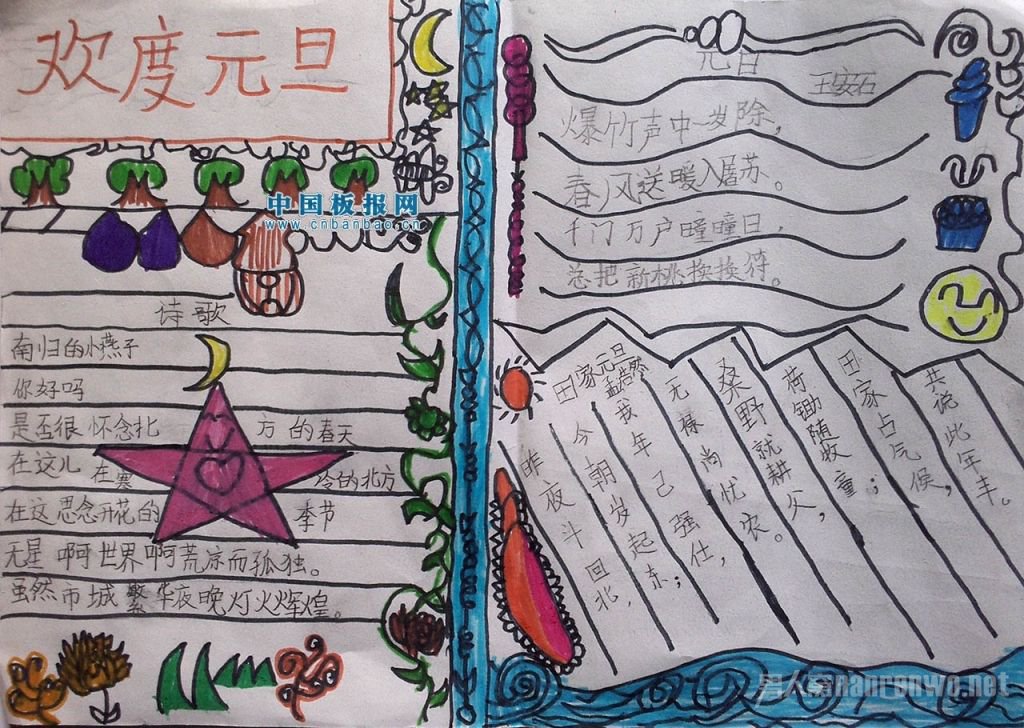 欢度元旦
中国板报网
www.cnbanbao.cn
诗歌
南归的小燕子
你好吗
是否很怀念北方的春天
在这儿在寒冷的北方
在这思念开花的季节
无星啊世界啊荒凉而孤独。
虽然市城繁华夜晚灯火辉煌。
元旦
王安石
爆竹声中一岁除,
春风送暖入屠苏。
千门万户瞳瞳日,
总把新桃换换符。
田家元旦
孟浩然
昨夜斗回北,
今朝岁起东;
我年已强仕,
无禄尚忧农。
桑野就耕父,
荷锄随牧童;
田家占气候,
共说此年丰。
nanrenwo.net